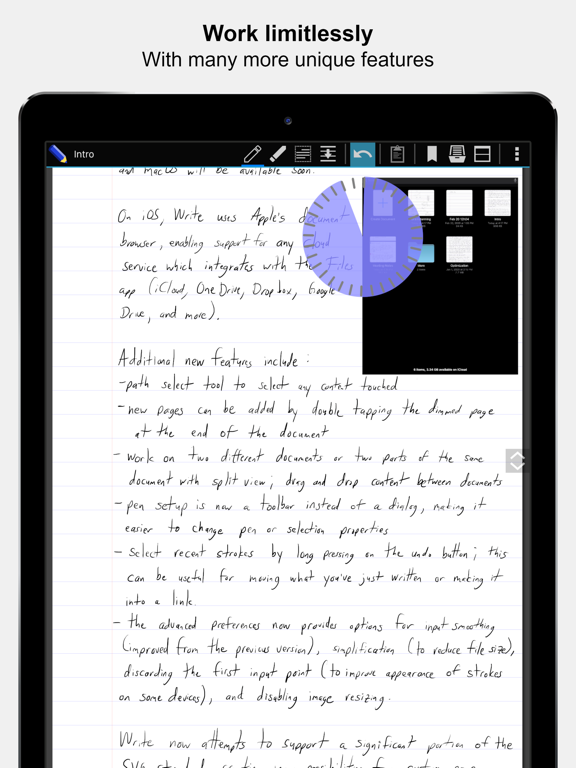 Work limitlessly
With many more unique features
Intro
and macOS will be available soon.
On iOS, Write uses Apple's document
browser, enabling support for any cloud
service which integrates with the Files
app (iCloud, OneDrive, Dropbox, Google
Drive, and more).
Additional new features include:
-path select tool to select any content touched
-new pages can be added by double tapping the dimmed page
at the end of the document
- work on two different documents or two parts of the same
document with split view; drag and drop content between documents
- pen setup is now a toolbar instead of a dialog, making it
easier to change pen or selection properties
- Select recent strokes by long pressing on the undo button; this
can be useful for moving what you've just written or making it
into a link.
- the advanced preferences now provides options for input smoothing
(improved from the previous version), simplification (to reduce file size),
discarding the first input point (to improve appearance of strokes
on some devices), and disabling image resizing.
Write now attempts to support a significant portion of the